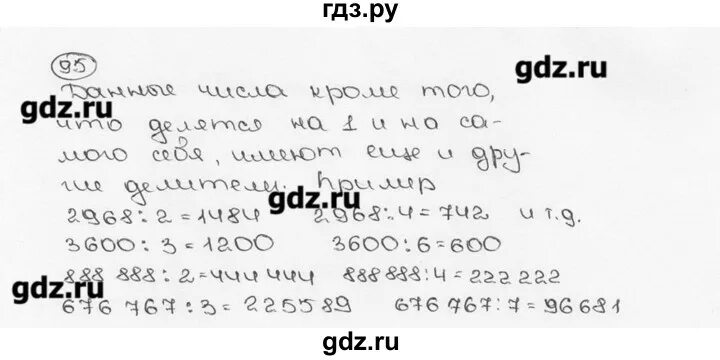 гдз.ру
95
Данные числа кроме того,
gdz.ru
gdz.ru
что делятся на 1 и на са-
мого себя, имеют еще и дру-
гие делители. Пример
gdz.ru
2968:2=1484 2968:4=742 и т.д.
3600:3=1200 3600:6=600
888 888:2=444 444 888 888:4=222 222
gdz.ru
676 767:3=225589 676 767:7=96681
gdz.ru